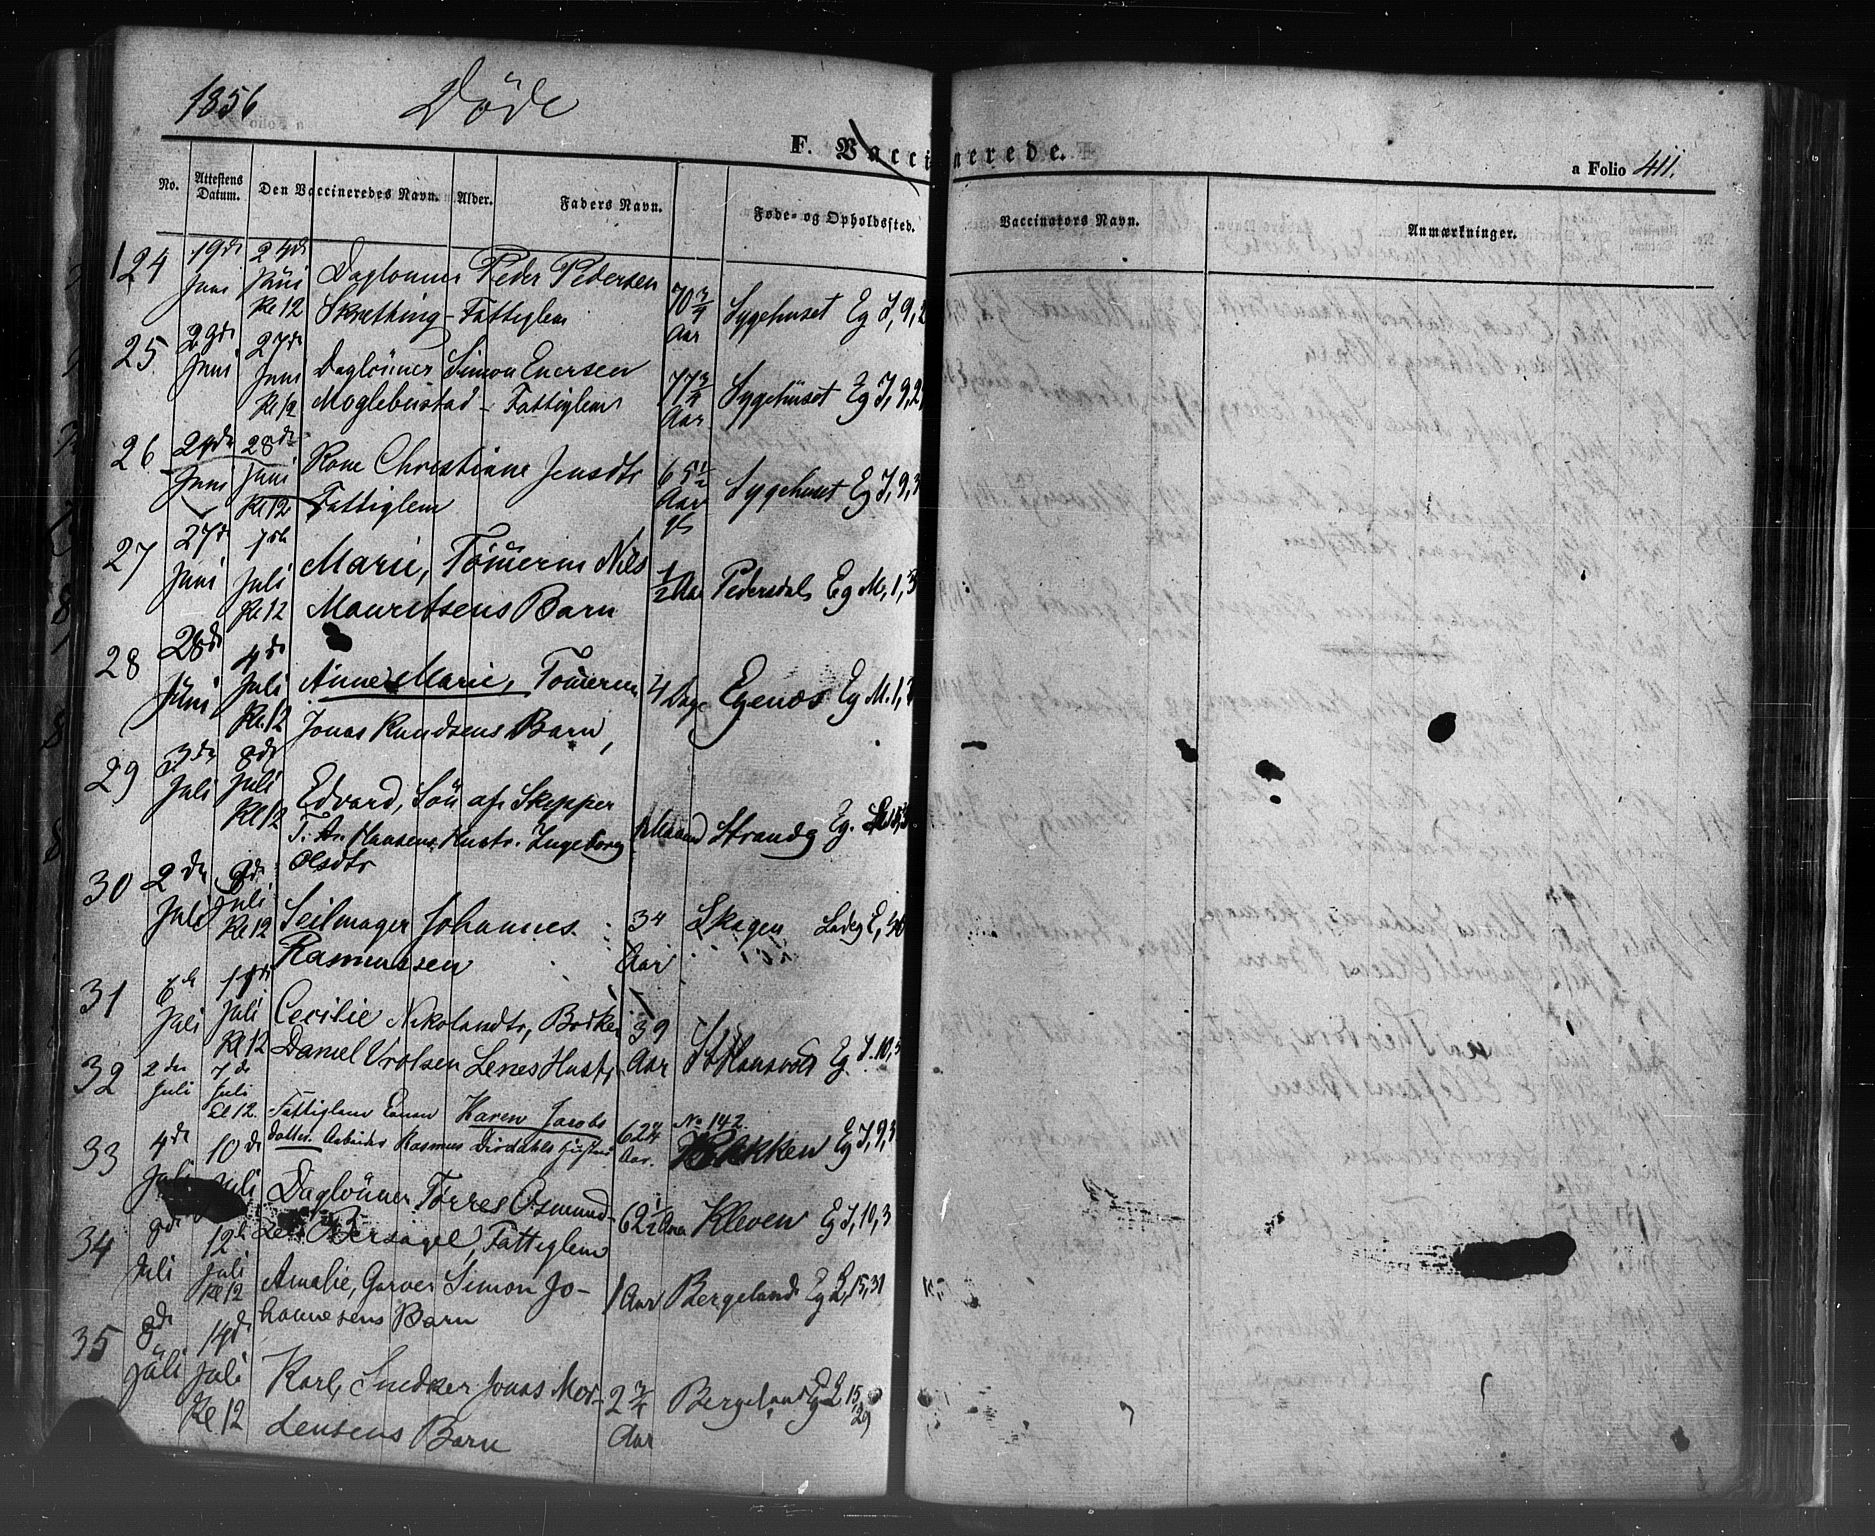 1856 Döde
F. Vaccinerede.
a Folio 411.
No. Attestens Datum. Den Vaccineredes Navn. Alder. Faders Navn. Føde- og Opholdssted. Vaccinators Navn. Anmærkninger.
124 19de Juni 24de Juni Kl 12 Daglönner Peder Pedersen
Skrething - Fattiglem 70 3/4 Aar Sygehuset Eg I, 9, 2
25 23de Juni 27de Juni Kl 12 Daglönner Simon Enersen
Moglebustad - Fattiglem 77 3/4 Aar Sygehuset Eg I, 9, 2
26 24de Juni 28de Juni Kl 12 Rone Christiane Jensdtr
Fattiglem 65 1/2 Aar Sygehuset Eg I, 9, 3
27 27de Juni 1ste Juli Kl 12 Marie, Tömerm Nils
Mauritsens Barn 1/2 Aar Pedersdal Eg M, 1, 3
28 28de Juni 4de Juli Kl. 12 Anne Marie, Tömerm
Jonas Knudsens Barn, 4 Dage Egenæs Eg M. 1,
29 3de Juli 8de Juli Kl 12 Edvard, Sön af Skipper
T. An Hansens Hustr. Ingeborg
Olsdtr Maaned Strandg Eg.
30 2den Juli Juli Kl 12 Seilmager Johannes
Rasmussen 34 Aar Skagen Ladeg
31 6te Juli 11de Juli Kl 12 Cecilie Nikolaidtr, Bödker
Daniel Vrolsen Lenes Hustr 39 Aar St Hansvold Eg. I. 10,
32 2den Juli 7de Juli Kl 12. Fattiglem Karen Jacobs
Datter. Arbeider Rasmus Dirdahls Hustru 62 3/4 Aar. No 142. Bakken Eg I, 9, 3
33 4de Juli 10de Juli Daglönner Torres Osmund-
sen Bersagel, Fattiglem 62 1/2 Aar Kleven Eg I, 10, 3
34 8de Juli 12te Juli Kl 12 Amalie, Garver Simon Jo-
hannesens Barn 1 Aar Bergeland Eg L, 15, 31
35 8de Juli 14de Juli Kl 12 Karl, Snedker Jonas Mor-
tensens Barn 2 3/4 Aar Bergeland Eg L 15, 29